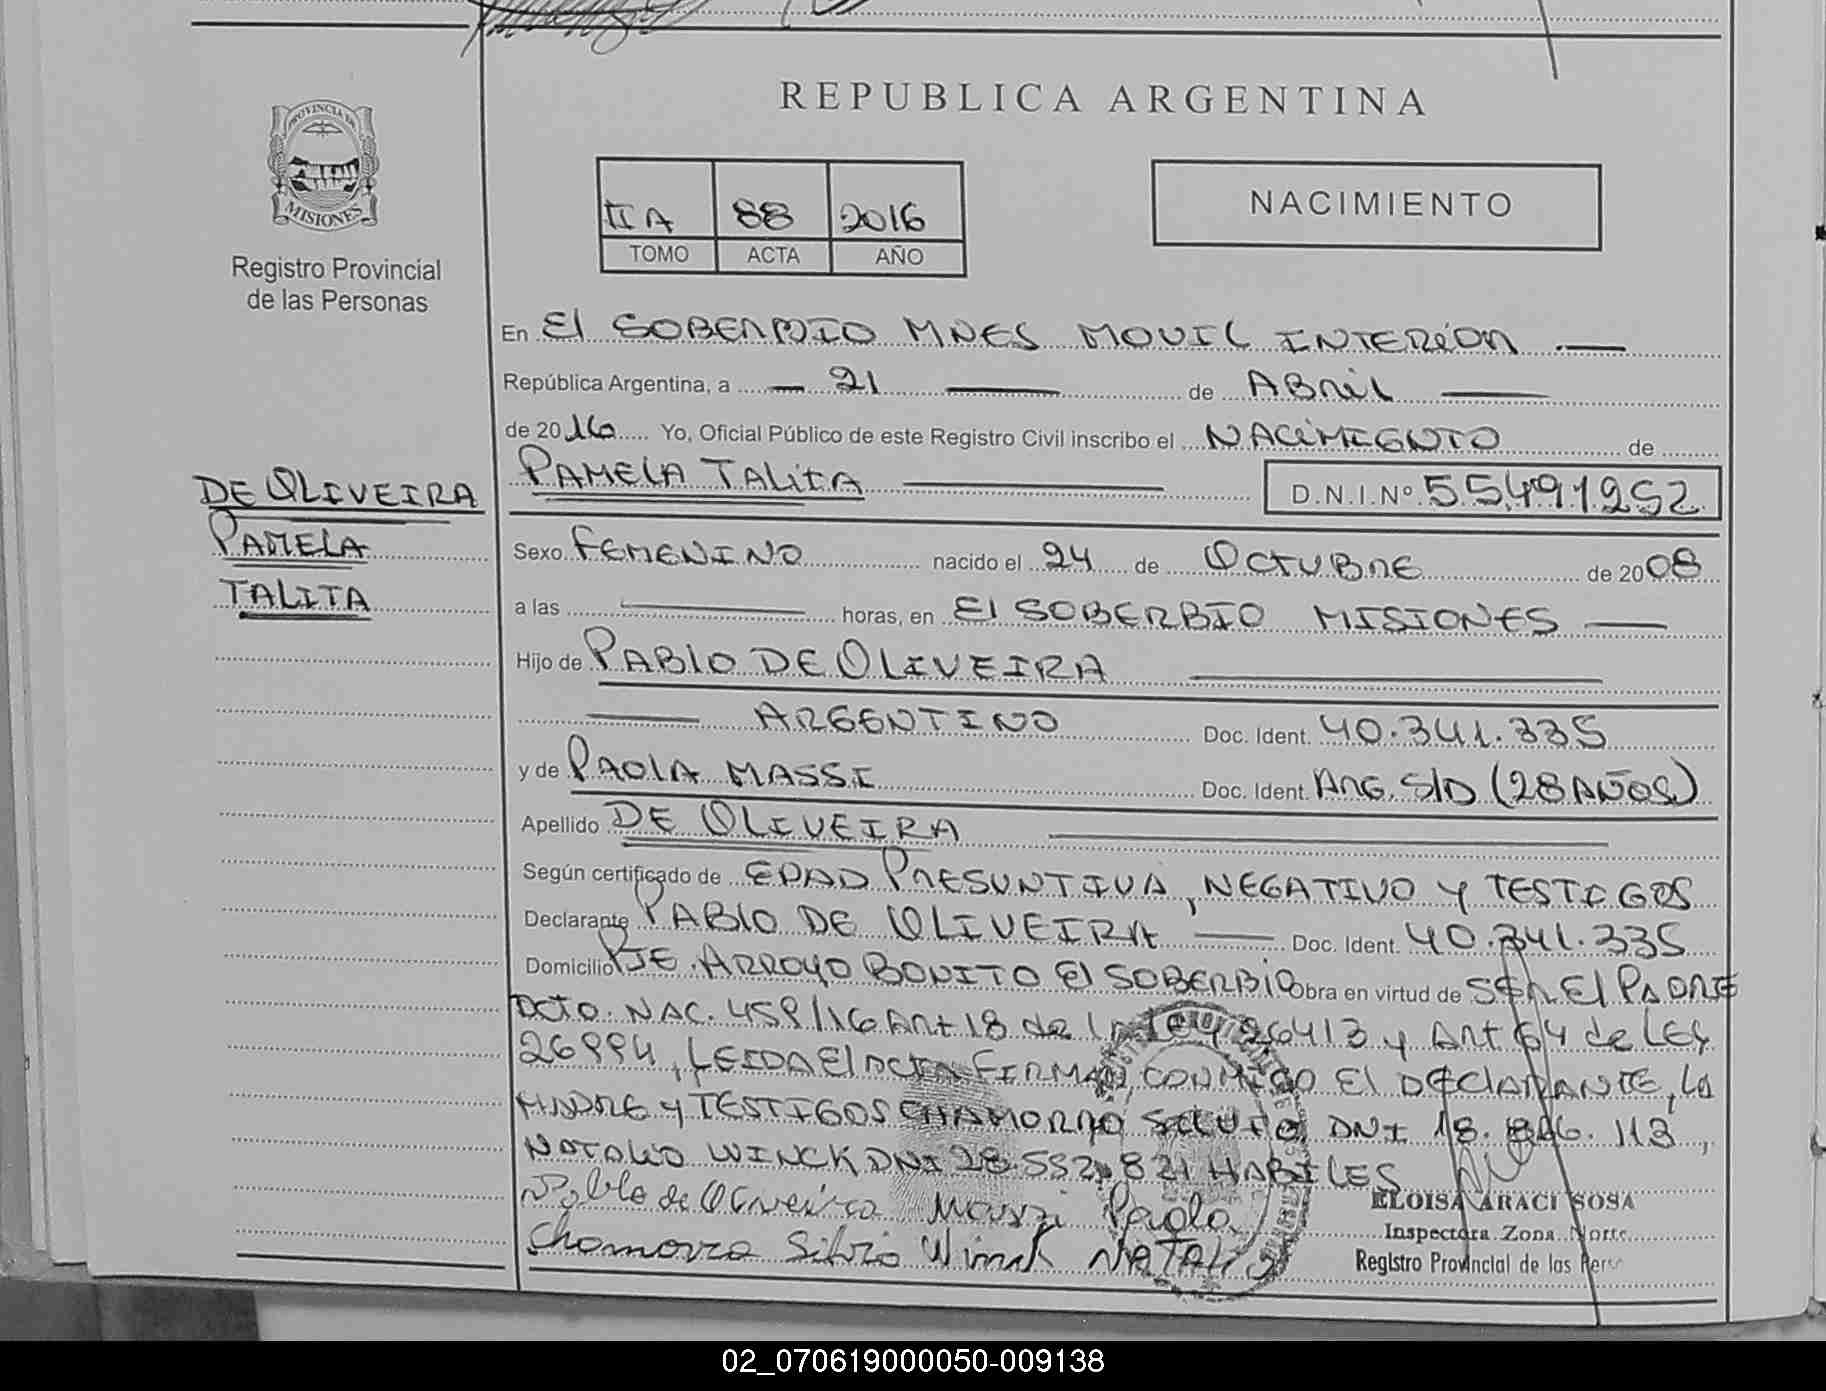 REPUBLICA ARGENTINA
PROVINCIA DE
MISIONES
Registro Provincial
de las Personas
II A 88 2016
TOMO ACTA AÑO
NACIMIENTO
En El SOBERBIO MNES MOVIL INTERIOR
República Argentina, a 21 de ABRIL
de 2016 Yo, Oficial Público de este Registro Civil inscribo el NACIMIENTO de
DE OLIVEIRA
PAMELA
TALITA
PAMELA TALITA D.N.I.Nº 55491252
Sexo FEMENINO nacido el 24 de OCTUBRE de 2008
a las horas, en El SOBERBIO MISIONES
Hijo de PABLO DE OLIVEIRA
ARGENTINO Doc. Ident. 40.341.335
y de PAOLA MASSI Doc. Ident. ARG. S/D (28 AÑOS)
Apellido DE OLIVEIRA
Según certificado de EDAD PRESUNTIVA, NEGATIVO Y TESTIGOS
Declarante PABLO DE OLIVEIRA Doc. Ident. 40.341.335
Domicilio PJE. ARROYO BONITO El SOBERBIO Obra en virtud de SER El PADRE
DCTO. NAC. 459/16 ART 18 de la Ley 26413 y ART 64 de LEY
26994, LEIDA El ACTA FIRMAN CONMIGO El DECLARANTE, LA
MADRE Y TESTIGOS CHAMORRO SILVIO DNI 18.846.113,
NATALIO WINCK DNI 28.552.821 HABILES
Pablo de Oliveira Massi Paola
Chamorro Silvio Winck NATALIO
ELOISA ARACI SOSA
Inspectora Zona Norte
Registro Provincial de las Pers
02_070619000050-009138